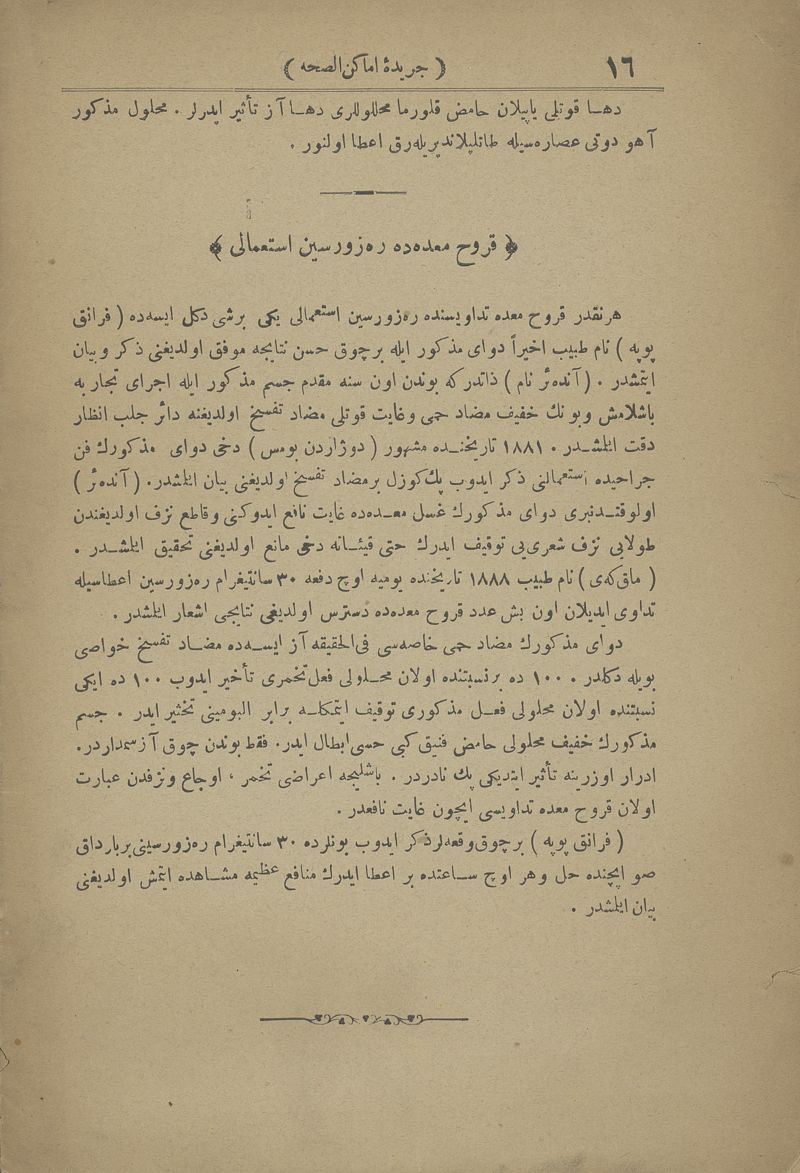 ١٦
( جریدۀ اماکن الصحه )
دهـا قوتلی یاپیلان حامض قلورما محلوللری دهـا آز تأثیر ایدرلر . محلول مذکور
آهو دوتی عصاره‌سیله طاتلیلاندیریله‌رق اعطا اولنور .
﴿ قروح معده‌ده ره‌زورسین استعمالی ﴾
هرنقدر قروح معده تداویسنده ره‌زورسین استعمالی یکی برشی دکل ایسه‌ده ( فرانق
پوپه ) نام طبیب اخیراً دوای مذکور ایله برچوق حسن نتایجه موفق اولدیغنی ذکر و بیان
ایتمشدر . ( آنده‌ئر نام ) ذاتدرکه بوندن اون سنه مقدم جسم مذکور ایله اجرای تجاربه
باشلامش و بونك خفیف مضاد حمی و غایت قوتلی مضاد تفسخ اولدیغنه دائر جلب انظار
دقت ایلمشـدر . ١٨٨١ تاریخنـده مشهور ( دوژاردن بومس ) دخی دوای مذکورك فن
جراحیده استعمالنی ذکر ایدوب پك کوزل برمضاد تفسخ اولدیغنی بیان ایلمشدر. ( آنده‌ئر )
اولوقتـدنبری دوای مذکورك غسل معـده‌ده غایت نافع ایدوکنی و قاطع نزف اولدیغندن
طولایی نزف شعری‌یی توقیف ایدرك حتی قیئـانه دخی مانع اولدیغنی تحقیق ایلمشـدر .
( ماق‌که‌ی ) نام طبیب ١٨٨٨ تاریخنده یومیه اوچ دفعه ٣٠ سانتیغرام ره‌زورسین اعطاسیله
تداوی ایدیلان اون بش عدد قروح معده‌ده دسترس اولدیغی نتایجی اشعار ایلمشدر .
دوای مذکورك مضاد حمی خاصه‌سی فی‌الحقیقه آز ایسـه‌ده مضـاد تفسخ خواصی
بویله دکلدر . ١٠٠ ده بر نسبتنده اولان محـلولی فعل تخمری تأخیر ایدوب ١٠٠ ده ایکی
نسبتنده اولان محلولی فعـل مذکوری توقیف ایتمکلـه برابر البومینی تخثیر ایدر . جسم
مذکورك خفیف محلولی حامض فنیق کبی حسی ابطال ایدر. فقط بوندن چوق آز سمداردر.
ادرار اوزرینه تأثیر ایتدیکی پك نادردر . باشلیجه اعراضی تخمر ، اوجاع و نزفدن عبارت
اولان قروح معده تداویسی ایچون غایت نافعدر .
( فرانق پوپه ) برچوق وقعه‌لر ذکر ایدوب بونلرده ٣٠ سانتیغرام ره‌زورسینی بر بارداق
صو ایچنده حل و هر اوچ سـاعتده بر اعطا ایدرك منافع عظیمه مشـاهده ایتمش اولدیغنی
بیان ایلمشدر .